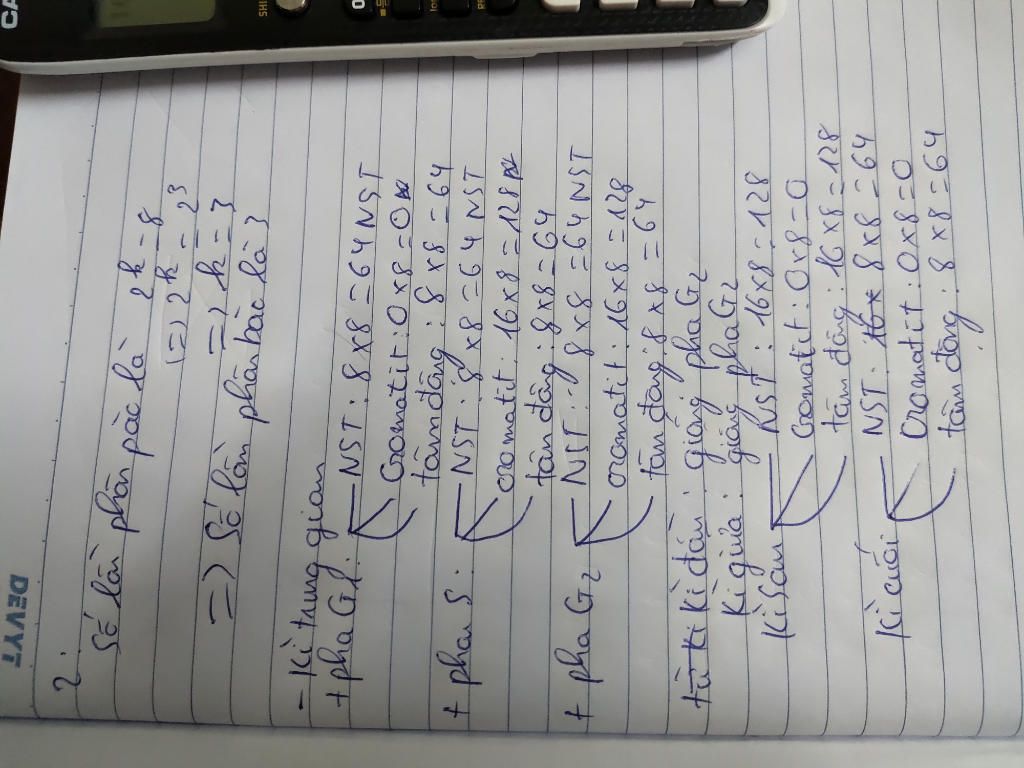 DEVYT
2.
Số lần phân pàc là 2k = 8
(=) 2k = 2³
=) k = 3
=) Số lần phân bào là 3
- Kì trung gian
+ pha G1: NST : 8 x 8 = 64 NST
Cromatit : 0 x 8 = 0
tâm động : 8 x 8 = 64
+ pha S : NST : 8 x 8 = 64 NST
cromatit : 16 x 8 = 128
tâm động : 8 x 8 = 64
+ pha G2 NST : 8 x 8 = 64 NST
cromatit : 16 x 8 = 128
tâm động : 8 x 8 = 64
Kì đầu : giống pha G2
Kì giữa : giống pha G2
Kì sau NST : 16 x 8 = 128
Cromatit : 0 x 8 = 0
tâm động : 16 x 8 = 128
Kì cuối NST : 8 x 8 = 64
Cromatit : 0 x 8 = 0
tâm động : 8 x 8 = 64